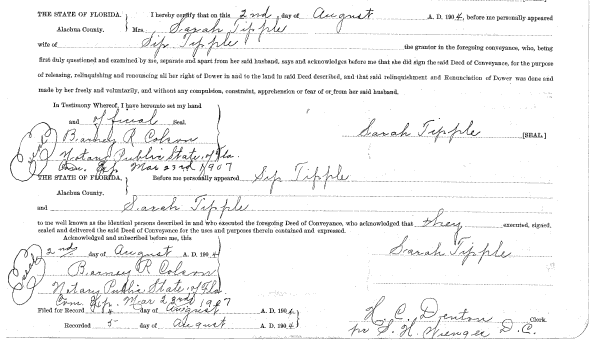 THE STATE OF FLORIDA, I hereby certify that on this 2nd day of August A. D. 1904, before me personally appeared
Alachua County. Mrs Sarah Tipple
wife of Sip Tipple the grantor in the foregoing conveyance, who, being
first duly questioned and examined by me, separate and apart from her said husband, says and acknowledges before me that she did sign the said Deed of Conveyance, for the purpose
of releasing, relinquishing and renouncing all her right of Dower in and to the land in said Deed described, and that said relinquishment and Renunciation of Dower was done and
made by her freely and voluntarily, and without any compulsion, constraint, apprehension or fear of or from her said husband.
In Testimony Whereof, I have hereunto set my hand
and official Seal.
Barney R Colson Sarah Tipple [SEAL.]
Notary Public State of Fla.
Com. Exp. Mar 23rd 1907
THE STATE OF FLORIDA, Before me personally appeared Sip Tipple
Alachua County.
and Sarah Tipple
to me well known as the identical persons described in and who executed the foregoing Deed of Conveyance, who acknowledged that they executed, signed,
sealed and delivered the said Deed of Conveyance for the uses and purposes therein contained and expressed.
Acknowledged and subscribed before me, this
2nd day of August A. D. 1904 Sarah Tipple
Barney R Colson
Notary Public State of Fla
Com. Exp. Mar 23rd 1907
Filed for Record 4 day of August A. D. 1904. H. C. Denton Clerk.
Recorded 5 day of August A. D. 1904. pr S. H. Wienges D. C.